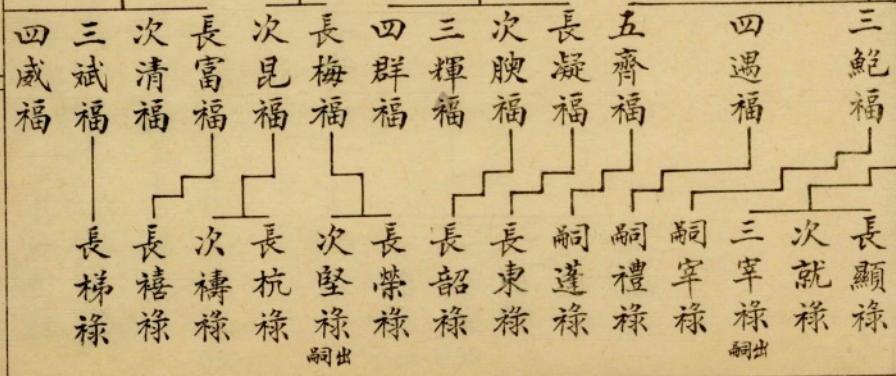 三鮑福
四遇福
五齊福
長凝福
次腴福
三輝福
四群福
長梅福
次昆福
長富福
次清福
三斌福
四威福
長顯祿
次就祿
三宰祿
出嗣
嗣宰祿
嗣禮祿
嗣蓬祿
長東祿
長韶祿
長榮祿
次堅祿
出嗣
長杭祿
次禱祿
長禧祿
長梯祿